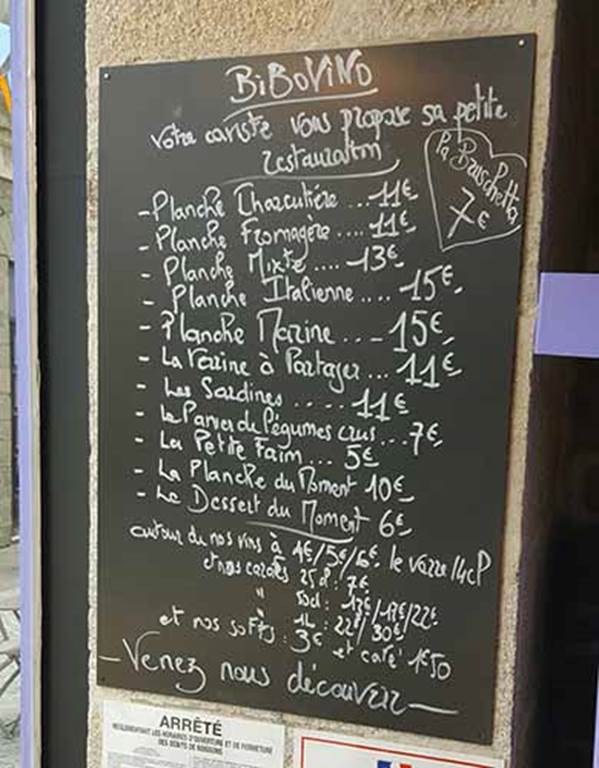 BiBoViNo
Votre caviste vous propose sa petite
restauration
La Bruschetta
7€
- Planche Charcutière ... 11€
- Planche Fromagère .... 11€
- Planche Mixte .... 13€
- Planche Italienne .... 15€
- Planche Marine ... 15€
- La Terrine à Partager ... 11€
- Les Sardines ..... 11€
- Le Panier de Légumes crus ... 7€
- La Petite Faim ... 5€
- La Planche du Moment 10€
- Le Dessert du Moment 6€
autour de nos vins à 4€/5€/6€ le verre 14cl
et nos carafes 25cl : 7€
" 50cl : 13€/17€/22€
" 1L : 22€/30€/
et nos softs : 3€ et café 1€50
— Venez nous découvrir —
ARRÊTÉ
RÉGLEMENTANT LES HORAIRES D'OUVERTURE ET DE FERMETURE
DES DÉBITS DE BOISSONS